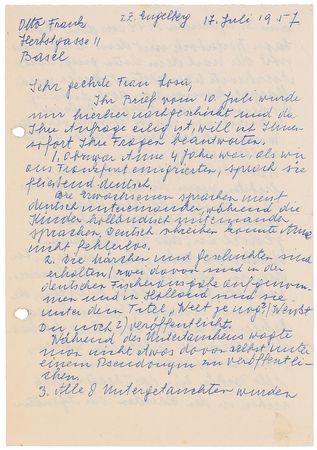 Otto Frank z.Z. Engelberg 17. Juli 1957
Herbstgasse 11
Basel
Sehr geehrte Frau Losa,
Ihr Brief vom 10. Juli wurde
mir hierher nachgeschickt und da
Ihre Anfrage eilig ist, will ich Ihnen
sofort Ihre Fragen beantworten.
1, Obzwar Anne 4 Jahre war, als wir
aus Frankfurt emigrierten, sprach sie
fliessend deutsch.
Die Erwachsenen sprachen meist
deutsch untereinander, während die
Kinder holländisch miteinander
sprachen. Deutsch schreiben konnte Anne
nicht fehlerlos.
2. Die Märchen und Geschichten sind
erhalten/ zwei davon sind in der
deutschen Fischerausgabe aufgenom-
men und in Holland sind sie
unter dem Titel „Weet je nog?/ Weisst
Du noch?/ veröffentlicht.
Während des Untertauchens wagte
man nicht etwas davon selbst unter
einem Pseudonym zu veröffentli-
chen.
3. Alle 8 Untergetauchten wurden